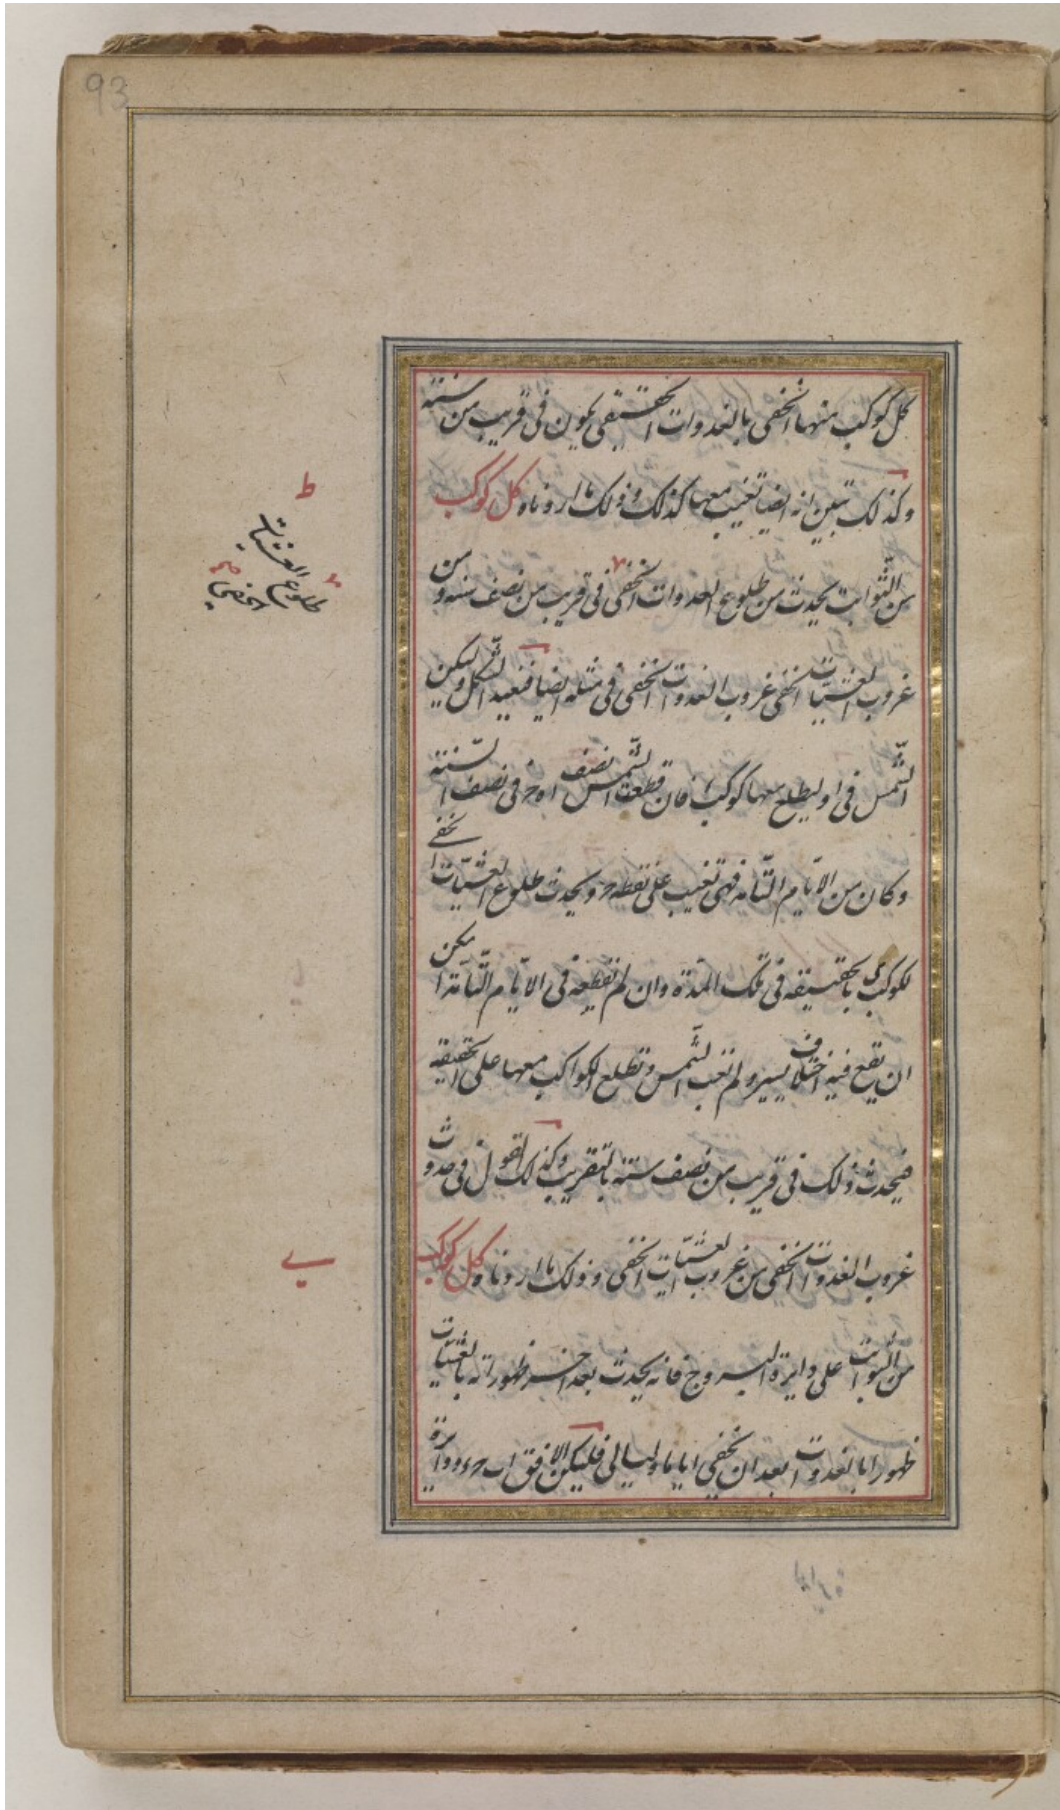 93
كل كوكب منها الخفى بالغدوات الحقيقى يكون فى قريب من سنة
وكذلك تبين انه ايضا تغيب معها كذلك وذلك ما اردناه كل كوكب
من الثوابت يحدث من طلوع الغدوات الخفى فى قريب من نصف سنه و من
غروب العشيات الخفى غروب الغدوات الخفى فى مثله ايضا فنعيد الشكل وليكن
الشمس فى ا وليطلع معها كوكب ا فان قطعت الشمس نصف ا ه ج فى نصف السنة
وكان من الايام التامة فهى تغيب على نقطه ج ويحدث طلوع العشيات الخفى
لكوكب ى بالحقيقه فى تلك المدة وان لم تقطعه فى الايام التامة امكن
ان يقع فيه اختلاف يسير ولم تغب الشمس وتطلع الكواكب معها على الحقيقة
فيحدث ذلك فى قريب من نصف سنة بالتقريب وكذلك القول فى حدوث
غروب الغدوات الخفى من غروب العشيات الخفى وذلك ما اردناه كل كوكب
من الثوابت على دايرة البروج فانه يحدث بعد اخر ظهوراته بالعشيات
ظهور ا بالغدوات بعد ان يخفى اياما وليالى فليكن الافق ا ب ج د ودايرة
ط
طلوع العشيات
الخفى
يـ